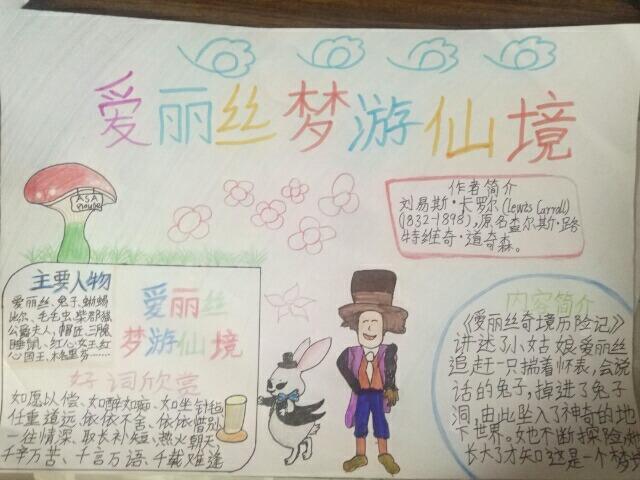 爱丽丝梦游仙境
作者简介
刘易斯·卡罗尔(Lewis Carroll)
(1832-1898),原名查尔斯·路
特维奇·道奇森。
主要人物
爱丽丝、兔子、蜥蜴
比尔、毛毛虫、柴郡猫
公爵夫人、帽匠、三月
睡鼠、红心女王、红
心国王
爱丽丝
梦游仙境
好词欣赏
如愿以偿、如醉如痴、如坐针毡
任重道远、依依不舍、依依惜别
一往情深、取长补短、热火朝天
千辛万苦、千言万语、千载难逢
内容简介
《爱丽丝奇境历险记》
讲述了小姑娘爱丽丝
追赶一只揣着怀表,会说
话的兔子,掉进了兔子
洞,由此坠入了神奇的地
下世界。她不断探险
长大了才知这是一个梦